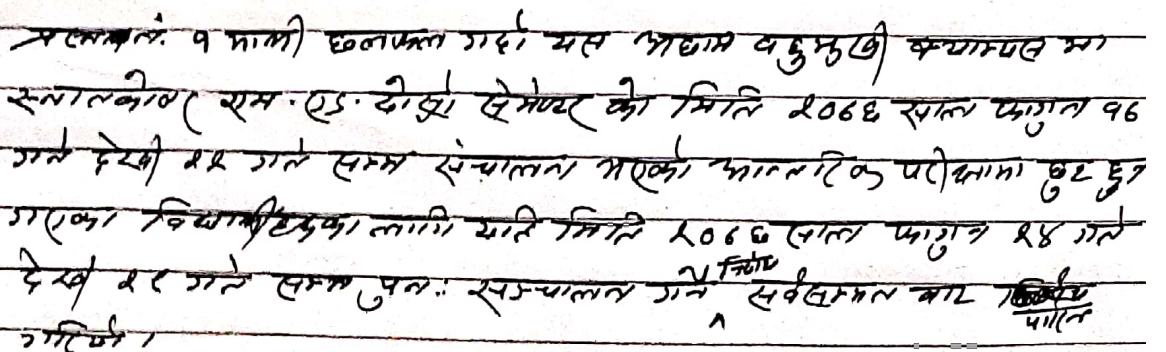 प्रस्ताव नं. १ माथी छलफल गर्दा यस अछाम बहुमुखी क्याम्पस मा
स्नातकोत्तर एम.एड. दोस्रो सेमेष्टर को मिति २०७६ साल फागुन १६
गते देखी २२ गते सम्म संचालन भएको आन्तरिक परीक्षामा छुट हुन
गएका विद्यार्थीहरुका लागि यहि मिति २०७६ साल फागुन २४ गते
देखी २९ गते सम्म पुनः सञ्चालन गर्ने निर्णय सर्वसम्मत बाट पारित
गरियो ।